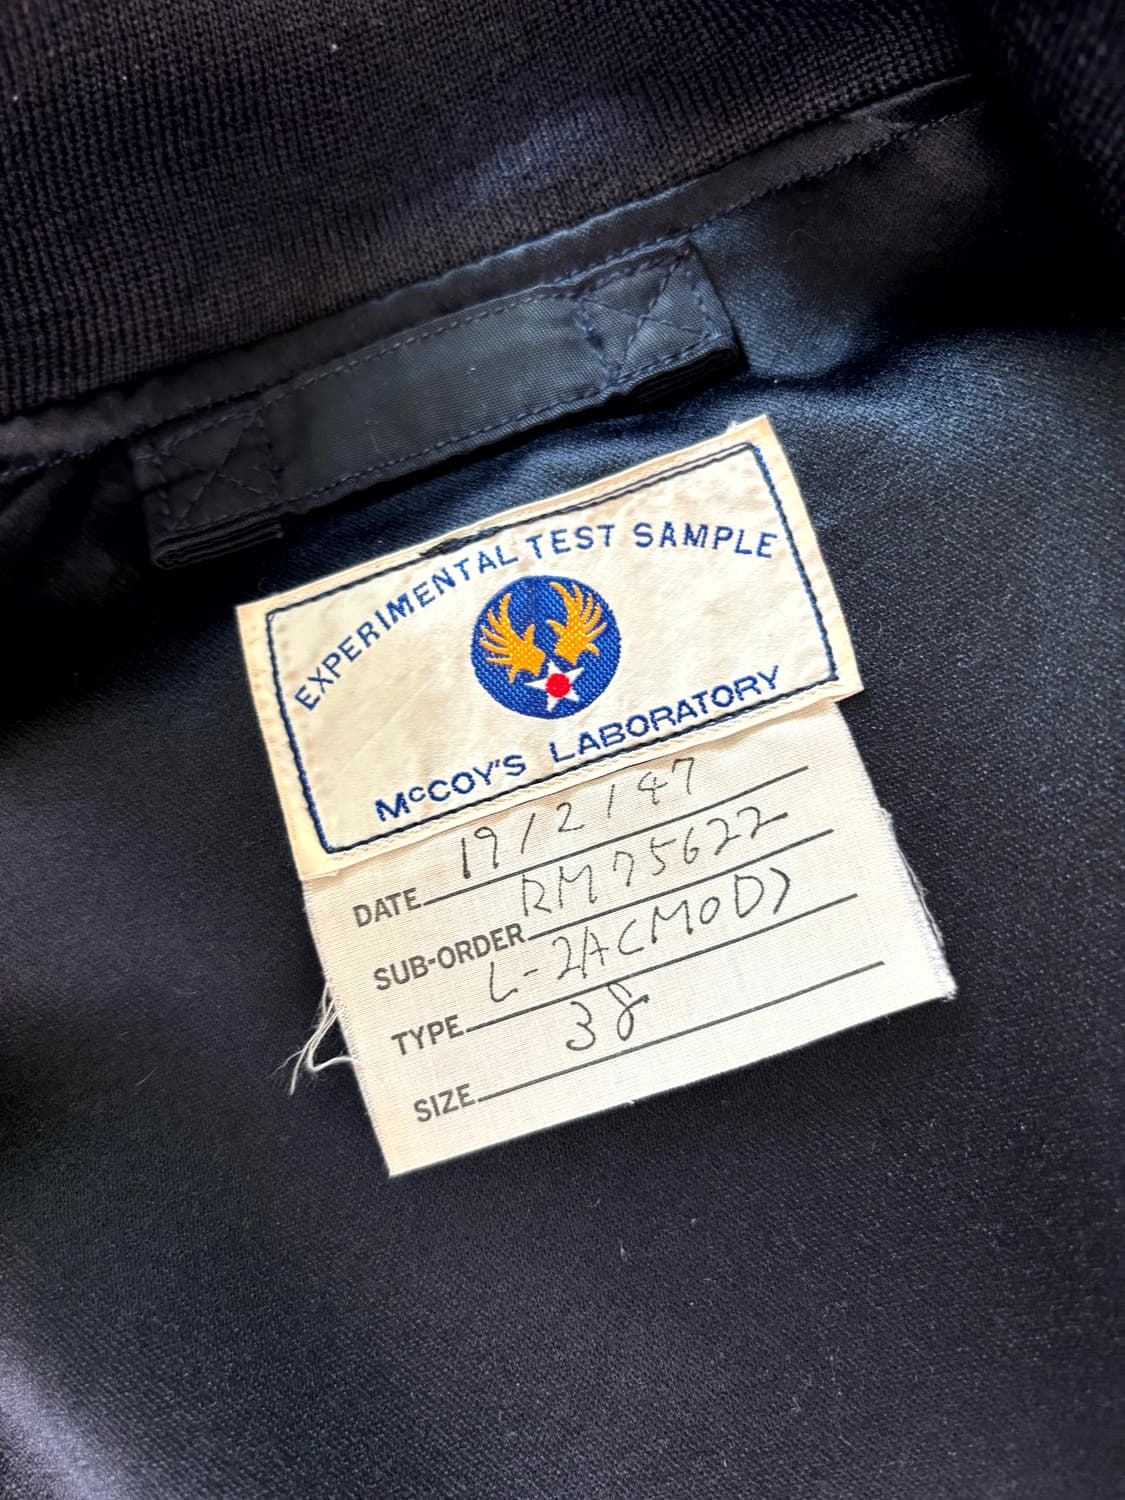 EXPERIMENTAL TEST SAMPLE
McCOY'S LABORATORY
DATE 19/2/47
SUB-ORDER RM75622
TYPE L-2A(MOD)
SIZE 38